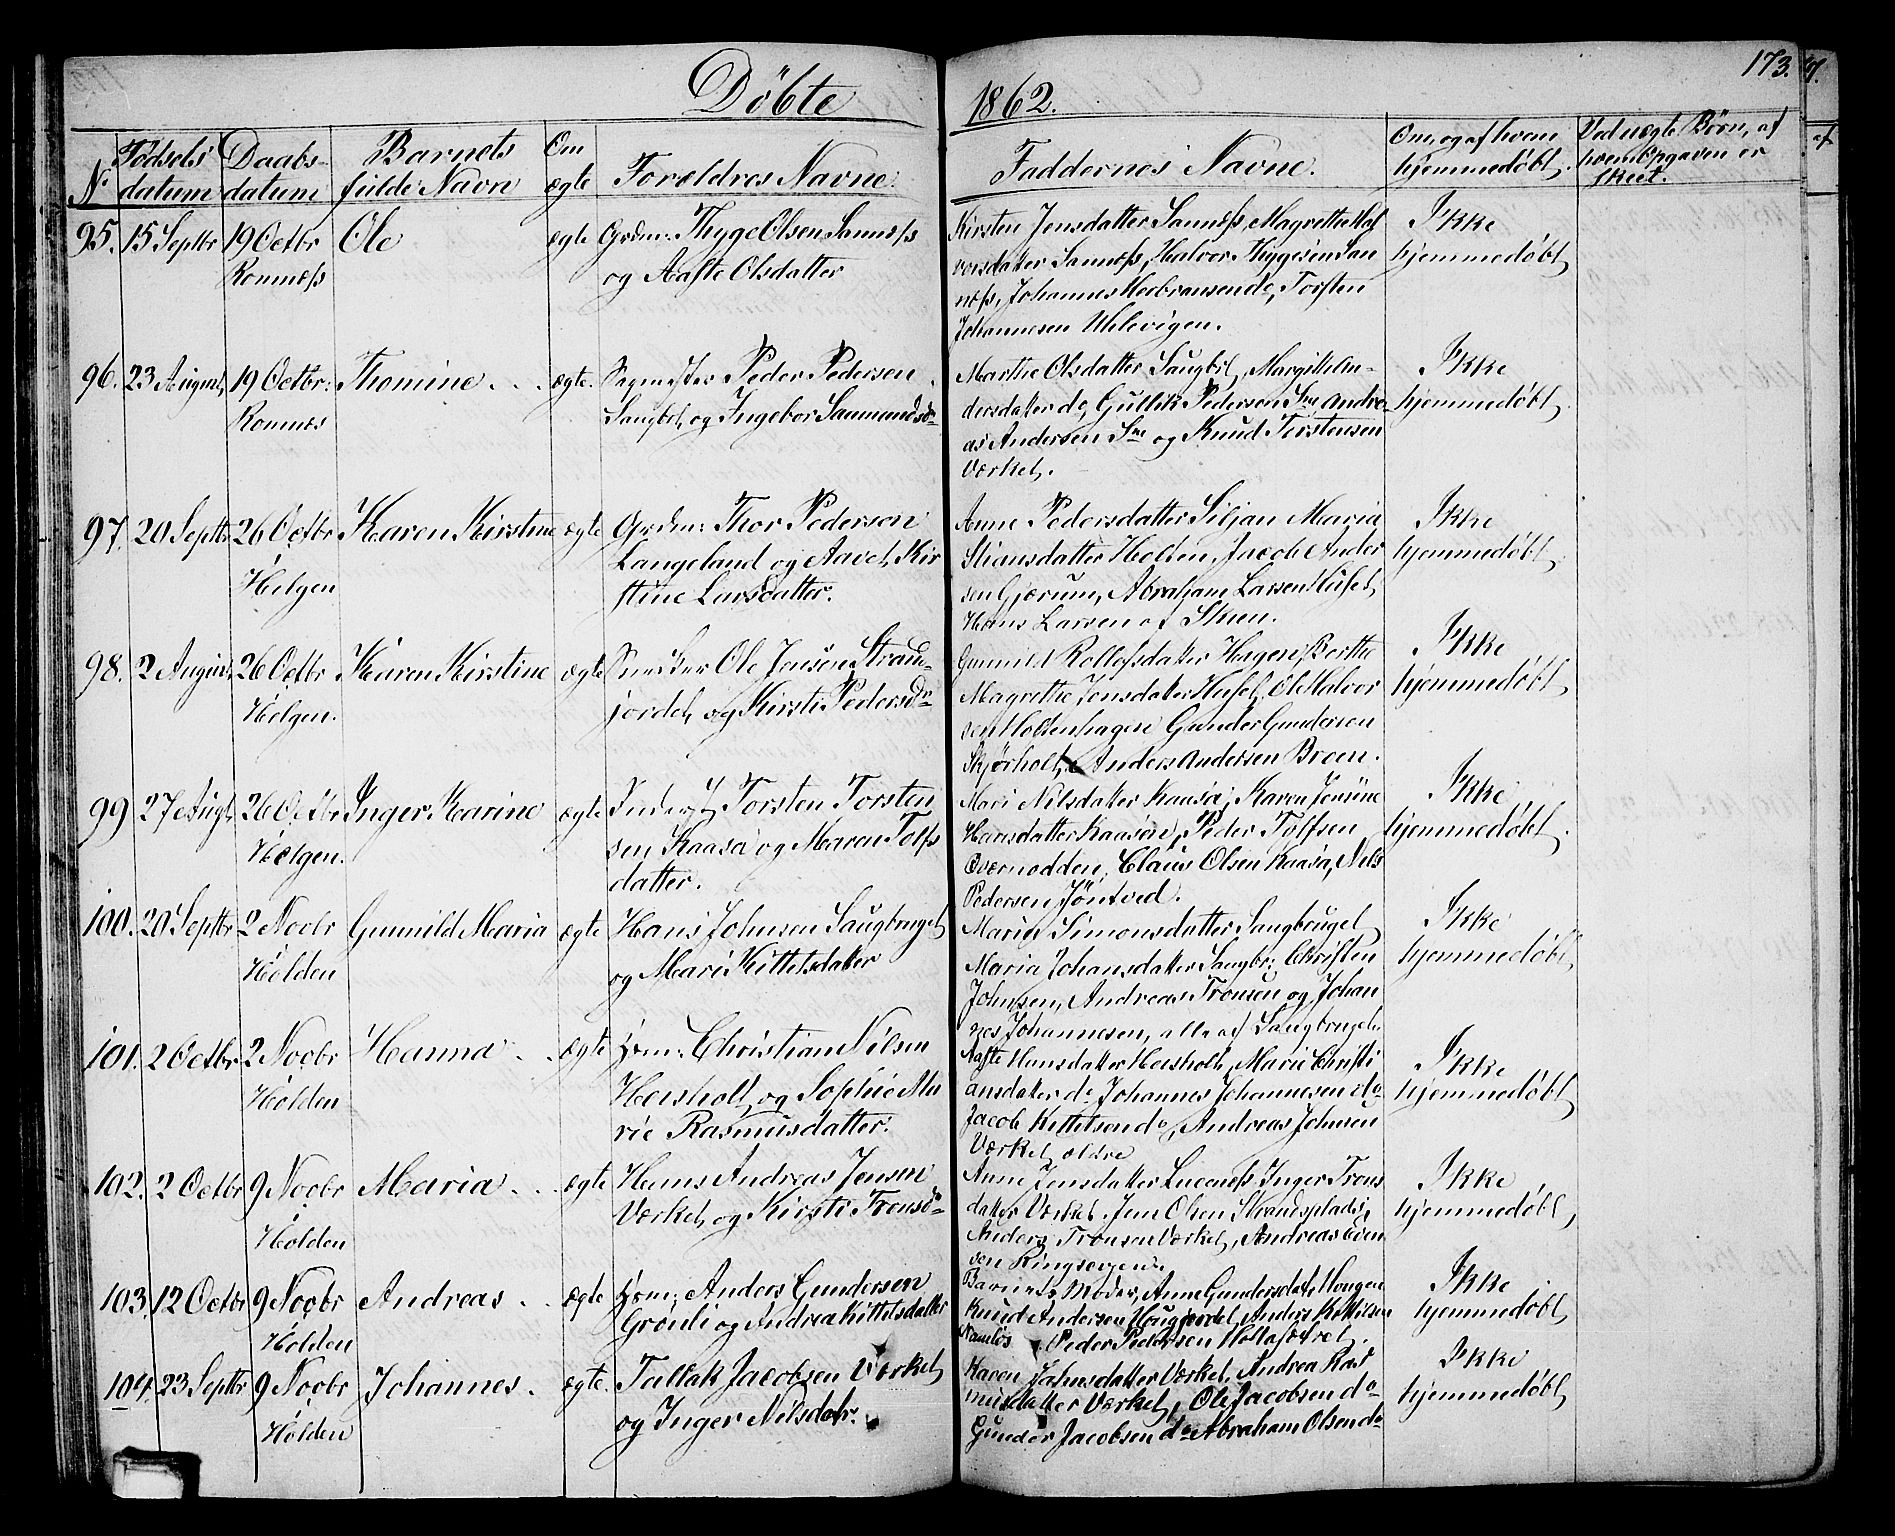 173.
Döbte 1862.
No
Födsels datum
Daabs- datum
Barnets fulde Navn
Om ægte
Forældres Navne.
Faddernes Navne.
Om, og af hvem hjemmedøbt.
Ved uægte Børn, af hvem Opgaven er skeet.
95. 15 Septbr 19 Octbr Ole ægte Grdm: Thyge Olsen Sannæss
Romnæss og Aaste Olsdatter
Kirsten Jensdatter Sannæss, Magrethe Hal
vorsdatter Sannæss, Halvor Thygesen San
næss, Johannes Herbransen do, Torsten
Johannesen Uhlevigen.
Ikke
hjemmedøbt,
96. 23 August, 19 Octbr: Thomine . . . ægte. Sagmester Peder Pedersen
Romnæs Saugbrt, og Ingebor Saamundsdr
Marthe Olsdatter Saugbrt, Margith An-
dersdatter do, Gullik Pedersen Sne Andre-
as Andersen Sne og Knud Torstensen
Værket.
Ikke
hjemmedøbt.
97. 20 Septbr 26 Octbr Karen Kirstine ægte Grdm: Thor Pedersen
Helgen Langeland og Aavet, Kir
stine Larsdatter.
Anne Pedersdatter Siljan Maria
Stiansdatter Holten, Jacob Ander
sen Gjærum, Abraham Larsen Huset,
Hans Larsen af Skien.
Ikke
hjemmedøbt,
98. 2 August, 26 Octbr Karen Kirstine ægte Snedker Ole Jensen Stran-
Helgen. jordet, og Kirsti Pedersdr
Gunnild Rollefsdatter Hagen, Berthe
Magrethe Jensdatter Huset, Ole Halvor
sen Holtenhagen Gunder Gundersen
Skjørholt, Anders Andersen Breen.
Ikke
hjemmedøbt,
99 27 Augt, 26 Octbr Inger Karine ægte Inderst, Torsten Torsten
Helgen. sen Kaasa og Maren Tolfs
datter.
Mari Nilsdatter Kaasa, Karen Jensine
Hansdatter Kaasene, Peder Tolfsen
Oværnodden, Claus Olsen Kaasa, Nils
Pedersen Jöntved.
Ikke
hjemmedøbt.
100. 20 Septbr 2 Novbr Gunnild Maria ægte Hans Johnsen Saugbruget,
Holden og Mari Kittelsdatter
Maria Simonsdatter Saugbruget,
Maria Johansdatter Saugbr: Christen
Johnsen, Andreas Tronsen og Johan
nes Johannesen, alle af Saugbruget.
Ikke
hjemmedøbt,
101. 2 Octbr 2 Novbr Hanna . . ægte Hsm: Christian Nilsen
Holden Hersholt, og Sophie Ma
rie Rasmusdatter.
Aaste Hansdatter Hersholt, Marie Christi
ansdatter do Johannes Johannesen do
Jacob Kittelsen do, Andreas Johnsen
Værket, ældre
Ikke
hjemmedøbt,
102. 2 Octbr 9 Novbr Maria . . . ægte Hans Andreas Jensen
Holden Værket, og Kirsti Tronsdr
Anne Jensdatter Lucanæss, Inger Trons
datter Værket. Jens Olsen Strandsplads,
Anders Tronsen Værket, Andreas Even
sen Ringsevjen.
Ikke
hjemmedøbt,
103. 12 Octbr 9 Novbr Andreas . . ægte Hsm; Anders Gundersen
Holden Grönli og Andrea Kittelsdatter
Barnets Moder, Anne Gundersdatr Haugen
Knud Andersen Haugjordet, Anders Kittilsen
Namlös Peder Pedersen Holtasætret.
Ikke
hjemmedøbt,
104. 23 Septbr 9 Novbr Johannes . ægte. Tallak Jacobsen Værket,
Holden og Inger Nilsdatr.
Karen Johnsdatter Værket, Andrea Ras
musdatter Værket, Ole Jacobsen do
Gunder Jacobsen do Abraham Olsen do
Ikke
hjemmedøbt,